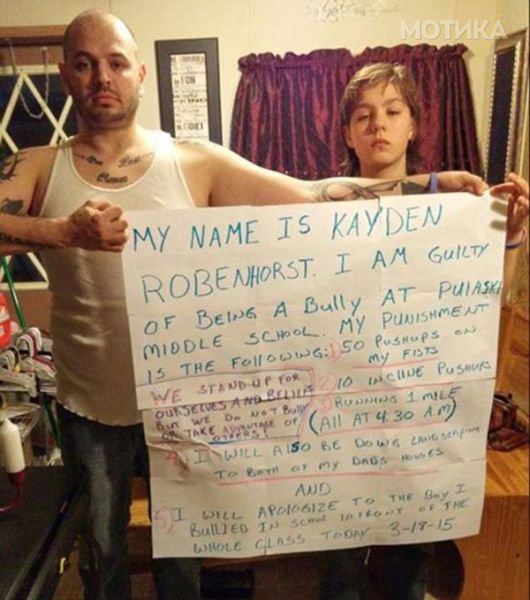 МОТИКА
MY NAME IS KAYDEN
ROBENHORST. I AM GUILTY
OF BEING A BULLY AT PULASKI
MIDDLE SCHOOL. MY PUNISHMENT
IS THE FOLLOWING: 1) 50 PUSHUPS ON
MY FISTS
WE STAND UP FOR
OURSELVES AND BELIEFS
BUT WE DO NOT BULLY
OR TAKE ADVANTAGE OF
OTHERS!
2) 10 INCLINE PUSHUPS
3) RUNNING 1 MILE
(All AT 4:30 A.M)
4) I WILL ALSO BE DOING LANDSCAPING
TO BOTH OF MY DADS HOUSES
AND
5) I WILL APOLOGIZE TO THE BOY I
BULLIED IN SCHOOL IN FRONT OF THE
WHOLE CLASS TODAY 3-18-15